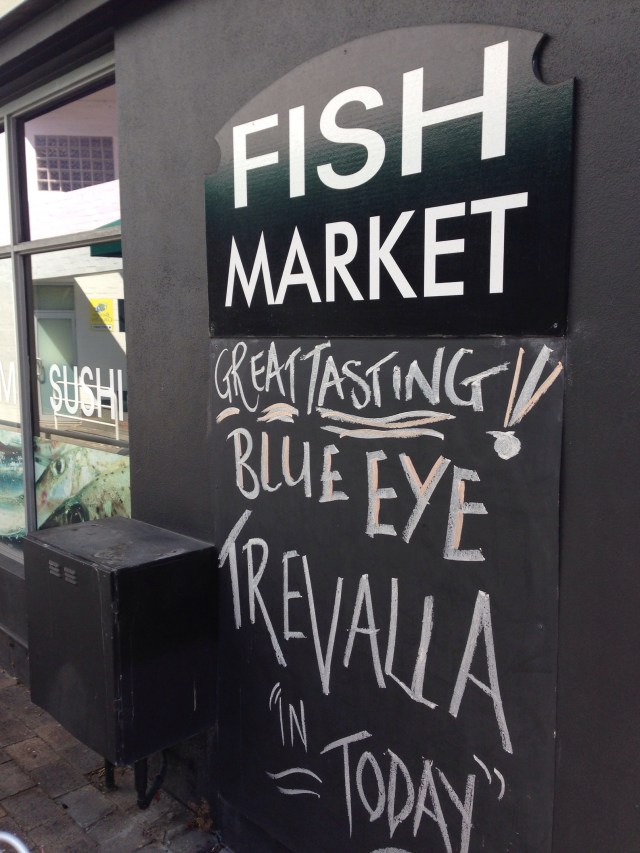 FISH
MARKET
GREAT TASTING!!
BLUE EYE
TREVALLA
"IN
TODAY"
SUSHI